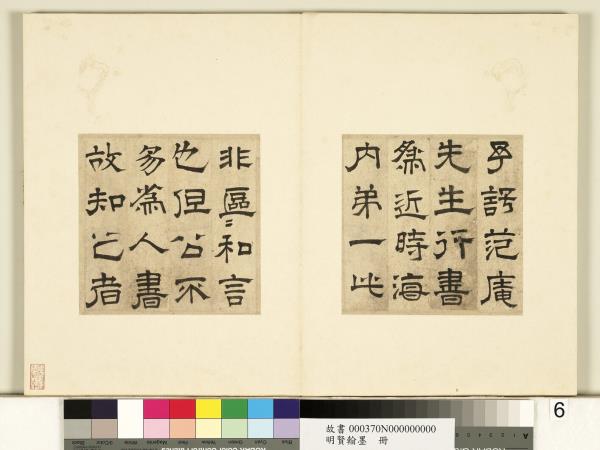 予評范庵
先生行書
為近時海
内弟一此
非區〻私言
也但公不
易為人書
故知之者
6
故書 000370N000000000
明賢翰墨 冊